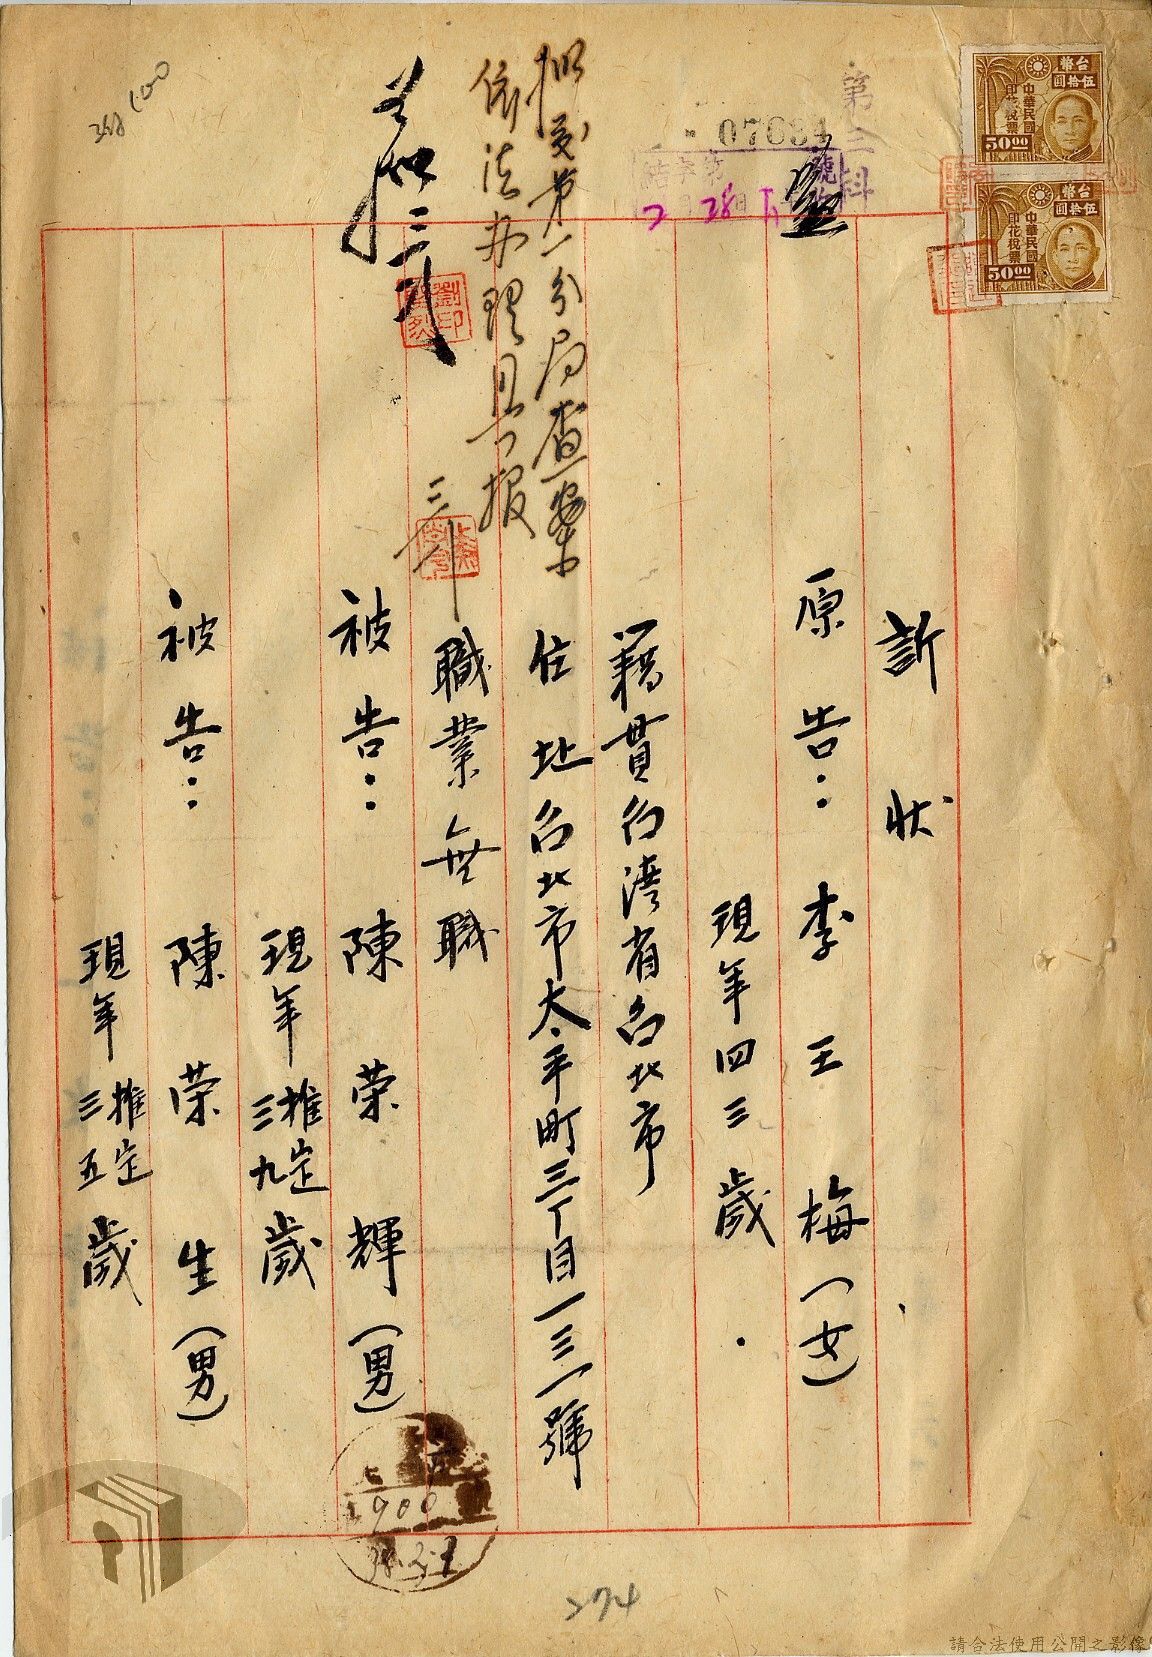 訴狀
原告：李王梅（女）
現年四三歲
籍貫台湾省台北市
住址台北市太平町三丁目一三一號
職業無職
被告：陳荣輝（男）
現年推定三九歲
被告：陳荣生（男）
現年推定三五歲
擬交第一分局查案
依法办理具报
三
如擬
劉印
第三科
07634
字第 號
2月28日
台幣
伍拾圓
中華民國
印花稅票
50.00
台幣
伍拾圓
中華民國
印花稅票
50.00
100
368
1900
38.3.1
274
請合法使用公開之影像